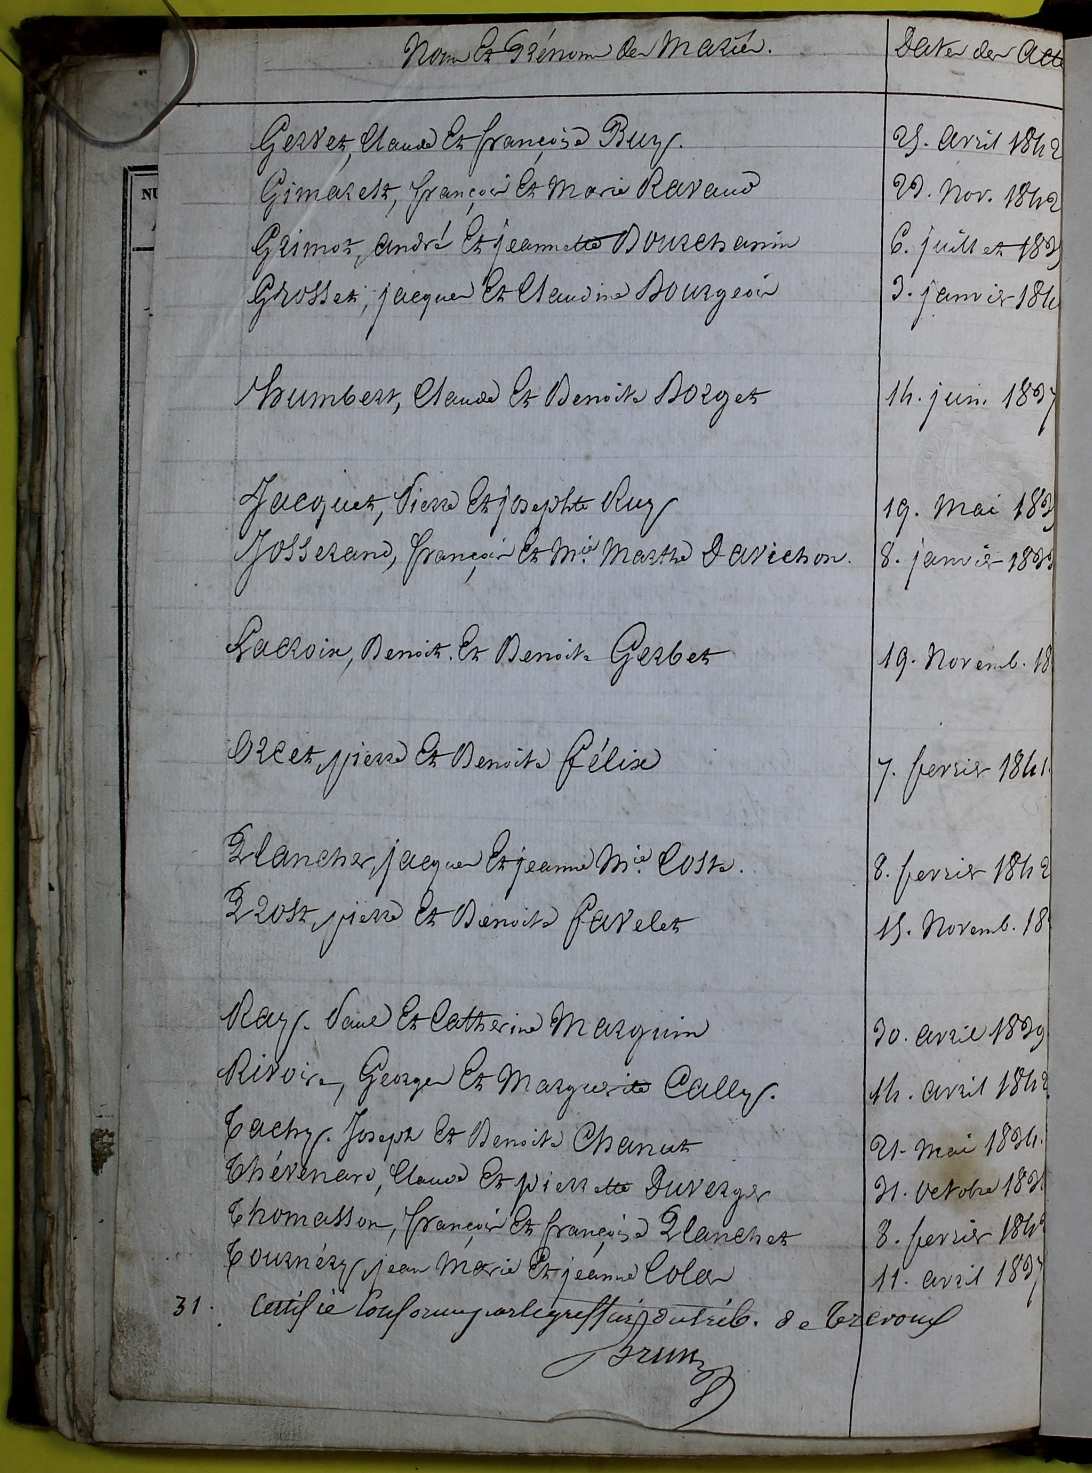 Nom Et Prénom des Mariés. Dates des Acte
NU
Gervet, Claude Et françoise Buy. 25. avril 1842
Gimaret, françois Et Marie Ravaud 23. Nov. 1842
Grimot, andré Et jeannette Bourchanin 6. juillet 183
Grosset, jacques Et Claudine Bourgeois 3. janvier 184
Humbert, Claude Et Benoite Borget 14. juin. 1837
Jacquet, Pierre Et josephte Ruy 19. Mai 183
Josserand, françois Et Mie Marthe Davichon. 8. janvier 1833
Lacroix, Benoit. Et Benoite Gerbet 19. Novemb. 18
Orcet, pierre Et Benoite félix 7. fevrier 1841.
Planche, jacques Et jeanne Mie Coste. 8. fevrier 1842
Prost, pierre Et Benoite favelet 15. Novemb. 18
Ray. Paul Et Catherine Marguin 30. avril 1839
Rivoire, Georges Et Marguerite Cally. 14. avril 1842
Tachy. Joseph Et Benoite Chanut 21. Mai 1834.
Thévenard, Claude Et pierrette Duverger 31. octobre 183
Thomasson, françois Et françoise Planchet 8. fevrier 184
Tournéry, jean Marie Et jeanne Colas 11. avril 1837
31. Certifié Conforme par le greffier du trib. de Trevoux
Brun